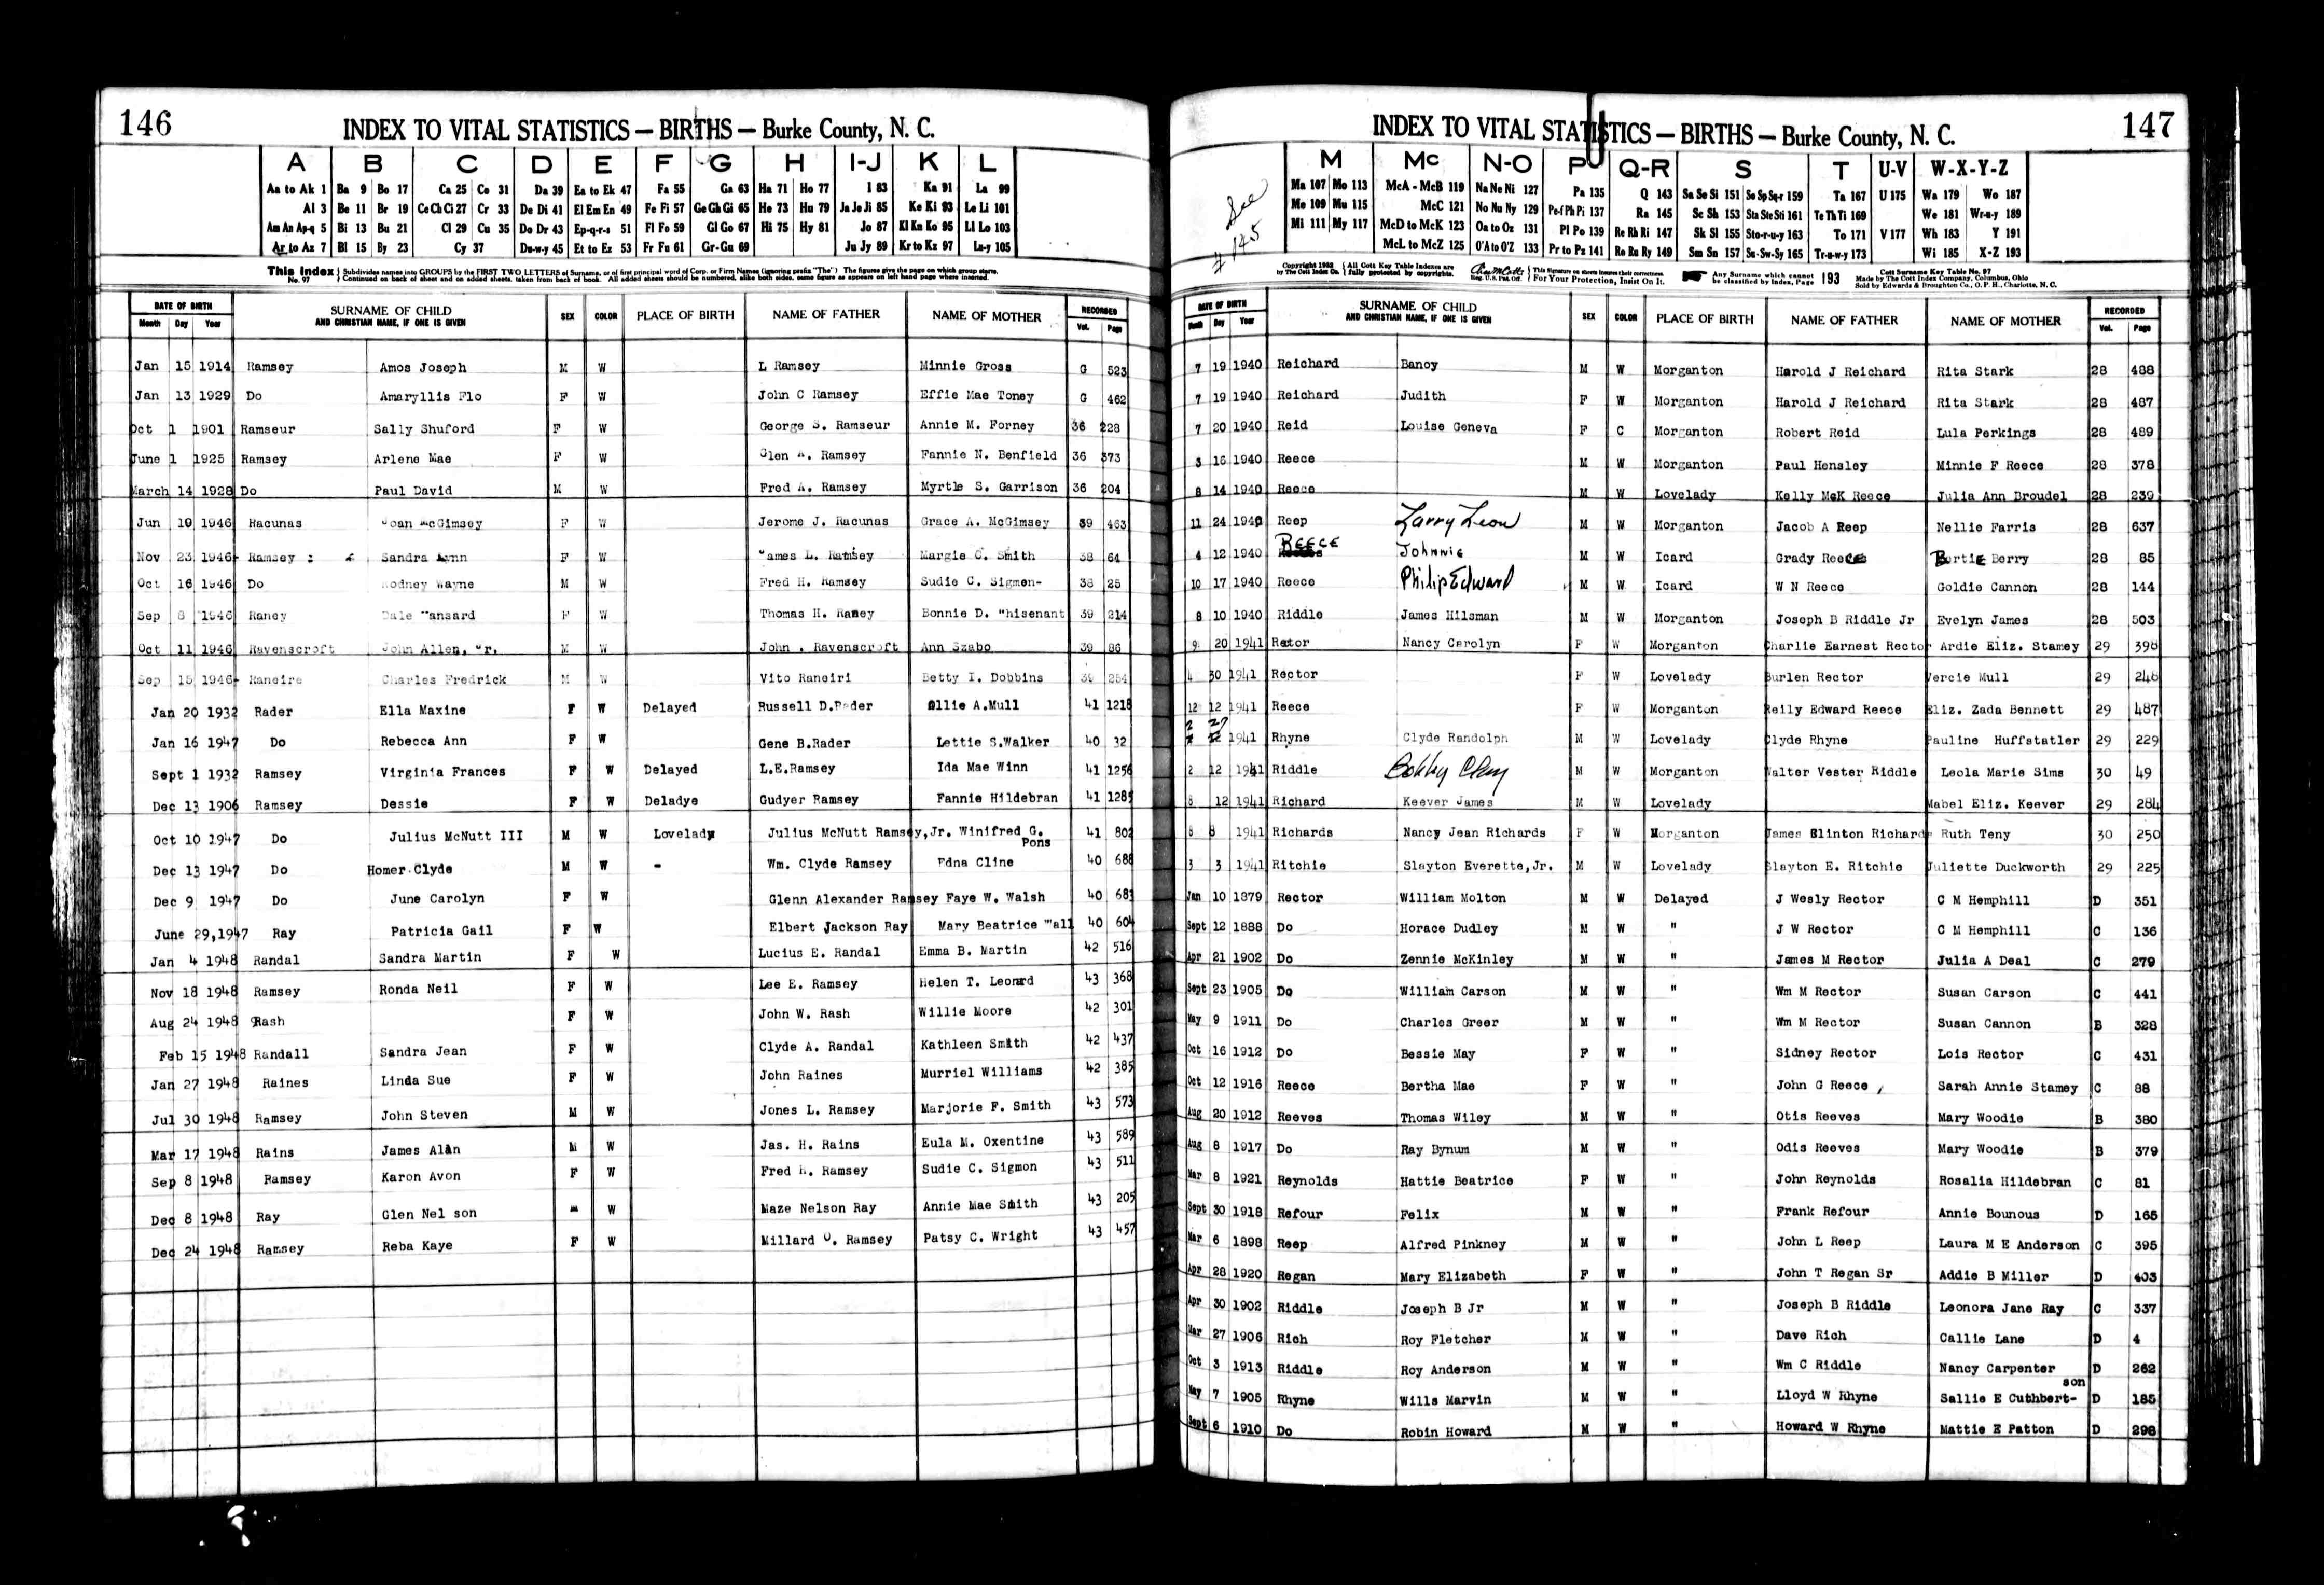 146
INDEX TO VITAL STATISTICS — BIRTHS — Burke County, N. C.
A B C D E F G H I-J K L
Aa to Ak 1 Ba 9 Bo 17 Ca 25 Co 31 Da 39 Ea to Ek 47 Fa 55 Ga 63 Ha 71 Ho 77 I 83 Ka 91 La 99
Al 3 Be 11 Br 19 Ce Ch Ci 27 Cr 33 De Di 41 El Em En 49 Fe Fi 57 Ge Gh Gi 65 He 73 Hu 79 Ja Je Ji 85 Ke Ki 93 Le Li 101
Am An Ap-q 5 Bi 13 Bu 21 Cl 29 Cu 35 Do Dr 43 Ep-q-r-s 51 Fl Fo 59 Gl Go 67 Hi 75 Hy 81 Jo 87 Kl Kn Ko 95 Ll Lo 103
Ar to Az 7 Bl 15 By 23 Cy 37 Du-w-y 45 Et to Ez 53 Fr Fu 61 Gr-Gu 69 Ju Jy 89 Kr to Kz 97 Lu-y 105
This Index No. 97 Subdivides names into GROUPS by the FIRST TWO LETTERS of Surname, or of first principal word of Corp. or Firm Names (ignoring prefix "The") The figures give the page on which group starts.
Continued on back of sheet and on added sheets, taken from back of book. All added sheets should be numbered, alike both sides, same figure as appears on left hand page where inserted.
DATE OF BIRTH SURNAME OF CHILD AND CHRISTIAN NAME, IF ONE IS GIVEN SEX COLOR PLACE OF BIRTH NAME OF FATHER NAME OF MOTHER RECORDED
Month Day Year Vol. Page
Jan 15 1914 Ramsey Amos Joseph M W L Ramsey Minnie Gross G 523
Jan 13 1929 Do Amaryllis Flo F W John C Ramsey Effie Mae Toney G 462
Oct 1 1901 Ramseur Sally Shuford F W George S. Ramseur Annie M. Forney 36 228
June 1 1925 Ramsey Arlene Mae F W Glen A. Ramsey Fannie N. Benfield 36 373
March 14 1928 Do Paul David M W Fred A. Ramsey Myrtle S. Garrison 36 204
Jun 10 1946 Racunas Joan McGimsey F W Jerome J. Racunas Grace A. McGimsey 39 463
Nov 23 1946 Ramsey Sandra Lynn F W James L. Ramsey Margie C. Smith 38 64
Oct 16 1946 Do Rodney Wayne M W Fred H. Ramsey Sudie C. Sigmon- 38 25
Sep 8 1946 Raney Dale Hansard F W Thomas H. Raney Bonnie D. Whisenant 39 214
Oct 11 1946 Ravenscroft John Allen, Jr. M W John . Ravenscroft Ann Szabo 39 86
Sep 15 1946 Raneire Charles Fredrick M W Vito Raneiri Betty I. Dobbins 39 254
Jan 20 1932 Rader Ella Maxine F W Delayed Russell D.Rader Ollie A.Mull 41 1218
Jan 16 1947 Do Rebecca Ann F W Gene B.Rader Lettie S.Walker 40 32
Sept 1 1932 Ramsey Virginia Frances F W Delayed L.E.Ramsey Ida Mae Winn 41 1256
Dec 13 1906 Ramsey Dessie F W Deladye Gudyer Ramsey Fannie Hildebran 41 1285
Oct 10 1947 Do Julius McNutt III M W Lovelady Julius McNutt Ramsey,Jr. Winifred G. Pons 41 802
Dec 13 1947 Do Homer Clyde M W - Wm. Clyde Ramsey Edna Cline 40 688
Dec 9 1947 Do June Carolyn F W Glenn Alexander Ramsey Faye W. Walsh 40 683
June 29,1947 Ray Patricia Gail F W Elbert Jackson Ray Mary Beatrice Wall 40 604
Jan 4 1948 Randal Sandra Martin F W Lucius E. Randal Emma B. Martin 42 516
Nov 18 1948 Ramsey Ronda Neil F W Lee E. Ramsey Helen T. Leonard 43 368
Aug 24 1948 Rash F W John W. Rash Willie Moore 42 301
Feb 15 1948 Randall Sandra Jean F W Clyde A. Randal Kathleen Smith 42 437
Jan 27 1948 Raines Linda Sue F W John Raines Murriel Williams 42 385
Jul 30 1948 Ramsey John Steven M W Jones L. Ramsey Marjorie F. Smith 43 573
Mar 17 1948 Rains James Alan M W Jas. H. Rains Eula M. Oxentine 43 589
Sep 8 1948 Ramsey Karon Avon F W Fred H. Ramsey Sudie C. Sigmon 43 511
Dec 8 1948 Ray Glen Nel son M W Maze Nelson Ray Annie Mae Smith 43 205
Dec 24 1948 Ramsey Reba Kaye F W Millard O. Ramsey Patsy C. Wright 43 457
147
INDEX TO VITAL STATISTICS — BIRTHS — Burke County, N. C.
See # 145
M Mc N-O P Q-R S T U-V W-X-Y-Z
Ma 107 Mo 113 McA - McB 119 Na Ne Ni 127 Pa 135 Q 143 Sa Se Si 151 So Sp Sq-r 159 Ta 167 U 175 Wa 179 Wo 187
Me 109 Mu 115 McC 121 No Nu Ny 129 Pe-f Ph Pi 137 Ra 145 Sc Sh 153 Sta Ste Sti 161 Te Th Ti 169 We 181 Wr-u-y 189
Mi 111 My 117 McD to McK 123 Oa to Oz 131 Pl Po 139 Re Rh Ri 147 Sk Sl 155 Sto-r-u-y 163 To 171 V 177 Wh 183 Y 191
McL to McZ 125 O'A to O'Z 133 Pr to Pz 141 Ro Ru Ry 149 Sm Sn 157 Su-Sw-Sy 165 Tr-u-w-y 173 Wi 185 X-Z 193
Copyright 1932 by The Cott Index Co. All Cott Key Table Indexes are fully protected by copyrights. Reg. U.S. Pat. Off. This Signature on sheets insures their correctness. For Your Protection, Insist On It. Any Surname which cannot be classified by Index, Page 193 Cott Surname Key Table No. 97
Made by The Cott Index Company, Columbus, Ohio
Sold by Edwards & Broughton Co., O. P. H., Charlotte, N. C.
DATE OF BIRTH SURNAME OF CHILD AND CHRISTIAN NAME, IF ONE IS GIVEN SEX COLOR PLACE OF BIRTH NAME OF FATHER NAME OF MOTHER RECORDED
Month Day Year Vol. Page
7 19 1940 Reichard Banoy M W Morganton Harold J Reichard Rita Stark 28 488
7 19 1940 Reichard Judith F W Morganton Harold J Reichard Rita Stark 28 487
7 20 1940 Reid Louise Geneva F C Morganton Robert Reid Lula Perkings 28 489
3 16 1940 Reece M W Morganton Paul Hensley Minnie F Reece 28 378
8 14 1940 Reece M W Lovelady Kelly McK Reece Julia Ann Broudel 28 239
11 24 1940 Reep Larry Leon M W Morganton Jacob A Reep Nellie Farris 28 637
4 12 1940 REECE Johnnie M W Icard Grady Reece Bertie Berry 28 85
10 17 1940 Reece Philip Edward M W Icard W N Reece Goldie Cannon 28 144
8 10 1940 Riddle James Hilsman M W Morganton Joseph B Riddle Jr Evelyn James 28 503
9 20 1941 Rector Nancy Carolyn F W Morganton Charlie Earnest Rector Ardie Eliz. Stamey 29 398
4 30 1941 Rector F W Lovelady Burlen Rector Vercie Mull 29 248
12 12 1941 Reece F W Morganton Reily Edward Reece Eliz. Zada Bennett 29 487
2 27 1941 Rhyne Clyde Randolph M W Lovelady Clyde Rhyne Pauline Huffstatler 29 229
2 12 1941 Riddle Bobby Clay M W Morganton Walter Vester Riddle Leola Marie Sims 30 49
8 12 1941 Richard Keever James M W Lovelady Mabel Eliz. Keever 29 284
8 8 1941 Richards Nancy Jean Richards F W Morganton James Clinton Richards Ruth Teny 30 250
3 3 1941 Ritchie Slayton Everette,Jr. M W Lovelady Slayton E. Ritchie Juliette Duckworth 29 225
Jan 10 1879 Rector William Molton M W Delayed J Wesly Rector C M Hemphill D 351
Sept 12 1888 Do Horace Dudley M W " J W Rector C M Hemphill C 136
Apr 21 1902 Do Zennie McKinley M W " James M Rector Julia A Deal C 279
Sept 23 1905 Do William Carson M W " Wm M Rector Susan Carson C 441
May 9 1911 Do Charles Greer M W " Wm M Rector Susan Cannon B 328
Oct 16 1912 Do Bessie May F W " Sidney Rector Lois Rector C 431
Oct 12 1916 Reece Bertha Mae F W " John G Reece Sarah Annie Stamey C 88
Aug 20 1912 Reeves Thomas Wiley M W " Otis Reeves Mary Woodie B 380
Aug 8 1917 Do Ray Bynum M W " Odis Reeves Mary Woodie B 379
Mar 8 1921 Reynolds Hattie Beatrice F W " John Reynolds Rosalia Hildebran C 81
Sept 30 1918 Refour Felix M W " Frank Refour Annie Bounous D 165
Mar 6 1898 Reep Alfred Pinkney M W " John L Reep Laura M E Anderson C 395
Apr 28 1920 Regan Mary Elizabeth F W " John T Regan Sr Addie B Miller D 403
Apr 30 1902 Riddle Joseph B Jr M W " Joseph B Riddle Leonora Jane Ray C 337
Mar 27 1906 Rich Roy Fletcher M W " Dave Rich Callie Lane D 4
Oct 3 1913 Riddle Roy Anderson M W " Wm C Riddle Nancy Carpenter D 262
May 7 1905 Rhyne Wills Marvin M W " Lloyd W Rhyne Sallie E Cuthbert-son D 185
Sept 6 1910 Do Robin Howard M W " Howard W Rhyne Mattie E Patton D 298